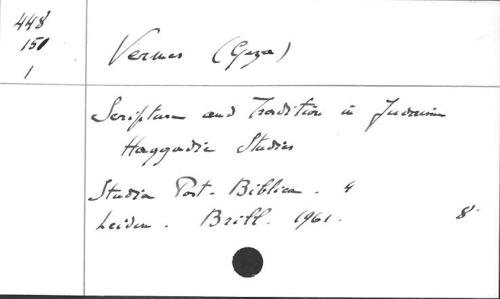 448
151
1
Vermes (Geza)
Scripture and Tradition in Judaism
Haggadic Studies
Studia Post-Biblica. 4
Leiden. Brill. 1961. 8º